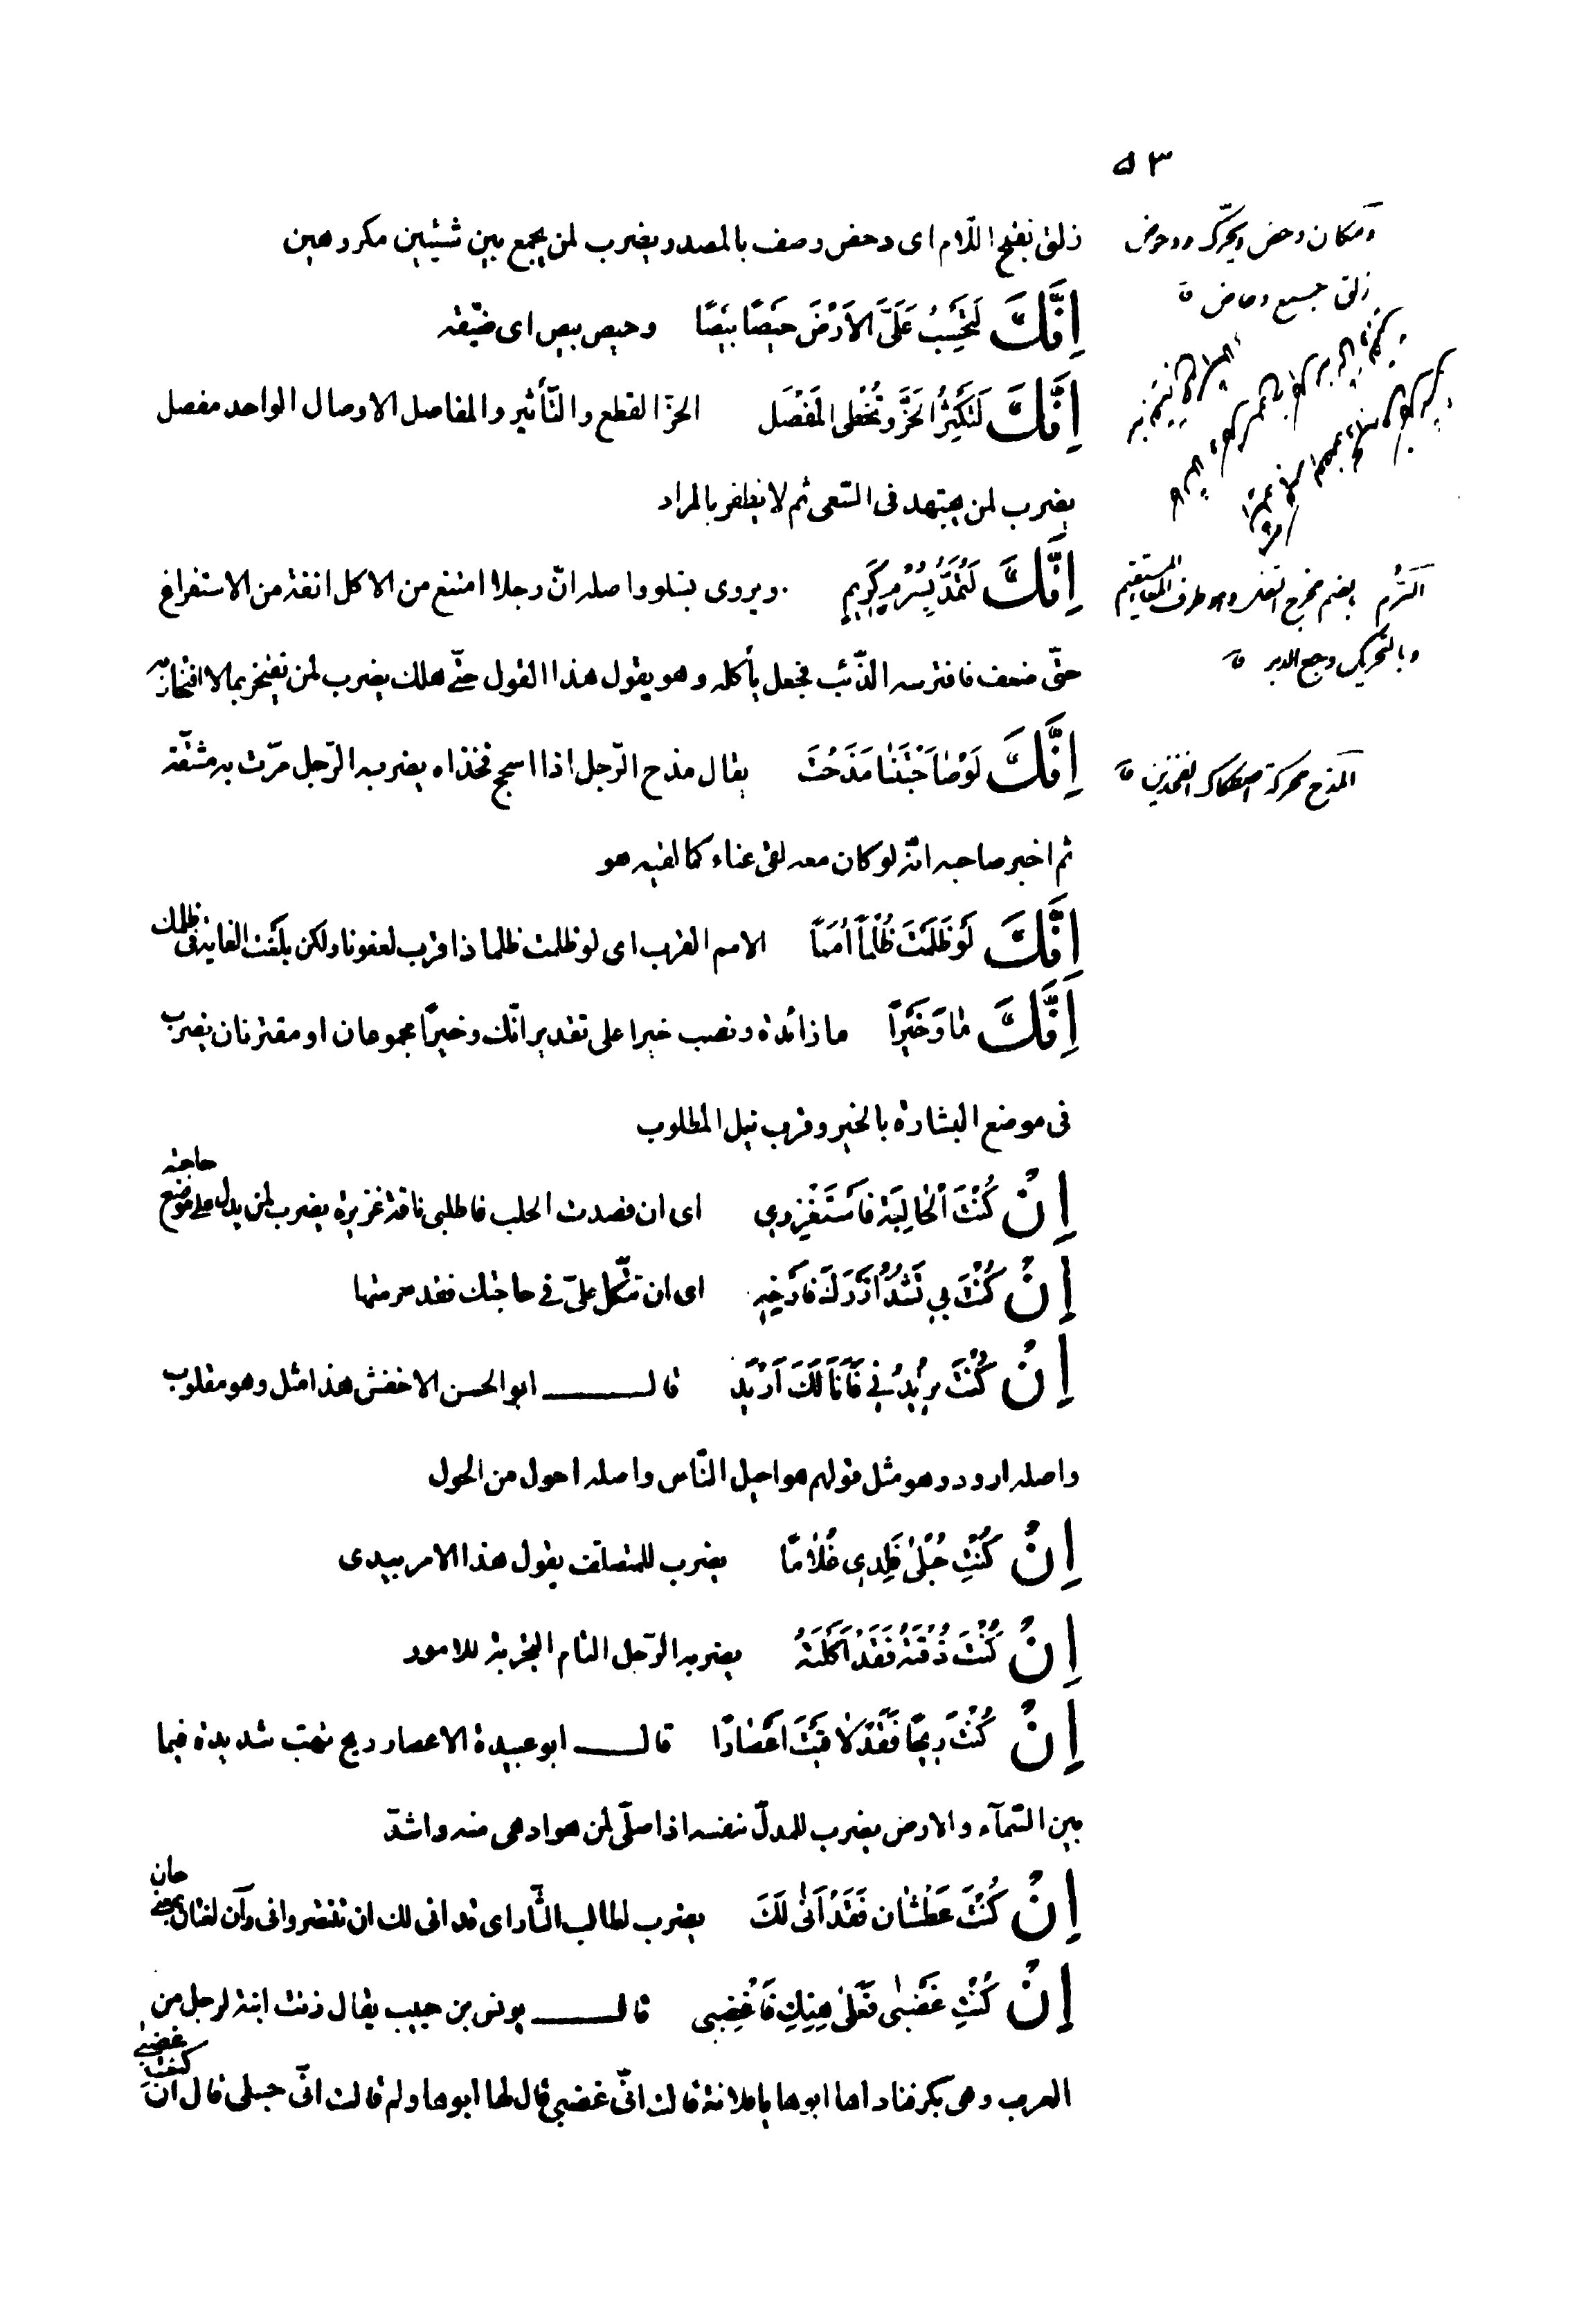 ٥٣
زلق بفتح اللّام اى دحض وصف بالمصدر يضرب لمن يجمع بين شيئين مكروهين
اِنَّكَ لَتَحْسِبُ عَلَىَّ الاَرْضَ حَيْصًا بَيْصًا وحيص بيص اى ضيّقه
اِنَّكَ لَتُكْثِرُ الحَزَّ وَتُخْطِى المَفْصَل الحزّ القطع والتّأثير والمفاصل الاوصال الواحد مفصل
يضرب لمن يجتهد فى السّعى ثم لا يظفر بالمراد
اِنَّكَ لَتُمَدُّ بِسُرْمٍ كَرِيمٍ ويروى بشلو واصله انّ رجلا امتنع من الاكل انفة من الاستفراغ
حتّى ضعف فافترسه الذّئب فجعل يأكله وهو يقول هذا القول حتّى هلك يضرب لمن يفتخر بما لا افتخار به
اِنَّكَ لَوْ صَاحَبْتَنَا مَذَحْتَ يقال مذح الرّجل اذا اسحج فخذاه يضربه الرّجل مرّت به مشقّة
ثم اخبر صاحبه انّه لو كان معه لقى عناء كما لقيه هو
اِنَّكَ لَوْ ظَلَمْتَ ظُلْمًا اُمَمًا الامم القرب اى لو ظلمت ظلما ذا قرب لعفونا ولكن بلغت الغاية فى ظلمك
اِنَّكَ مَا وَخَيْرًا ما زائدة ونصب خيرا على تقدير انّك وخيرًا مجموعان او مقترنان يضرب
فى موضع البشارة بالخير وقرب نيل المطلوب
اِنْ كُنْتَ الْحَالِبَةَ فَاسْتَغْزِرِى اى ان قصدت الحلب فاطلبى ناقة غزيرة يضرب لمن يدل على موضع حاجته
اِنْ كُنْتَ بِى تَشُدُّ اَزْرَكَ فَاَرْخِهِ اى ان تتّكل علىّ فى حاجتك فقد حرمتها
اِنْ كُنْتَ تُرِيدُنِى فَاَنَا لَكَ اَرْيَدُ قال ابو الحسن الاخفش هذا مثل وهو مقلوب
واصله ارود وهو مثل قولهم هو احيل النّاس واصله احول من الحول
اِنْ كُنْتِ حُبْلَى فَلِدِى غُلَامًا يضرب للمتصلّف يقول هذا الامر بيدى
اِنْ كُنْتَ ذُقْتَهُ فَقَدْ اَكَلْتَهُ يضربه الرّجل التام التجربة للامور
اِنْ كُنْتَ رِيحًا فَقَدْ لَاقَيْتَ اِعْصَارًا قال ابو عبيدة الاعصار ريح تهبّ شديدة فيما
بين السّمآء والارض يضرب للمدلّ بنفسه اذا صلّى لمن هو ادهى منه واشدّ
اِنْ كُنْتَ عَطْشَانَ فَقَدْ اَنَى لَكَ يضرب لطالب الثّار اى قد انى لك ان تنتصر وانى وآن لغتان بمعنى حان
اِنْ كُنْتِ غَضْبَى فَعَلَى هَنِكِ فَاغْضَبِى قال يونس بن حبيب يقال زنت ابنة لرجل من
العرب وهى بكر فناداها ابوها يا فلانة قالت انّى غضبى قال لها ابوها ولم قالت انّى حبلى قال ان كنت غضبى
ومكان دحض ويحرّك ودحوض
زلق جمع دحاض ق
السّرم بضم مخرج الثفل وهو طرف المعاء المستقيم
وبالتحريك وجع الدبر ق
المذح محركة اصطكاك الفخذين ق